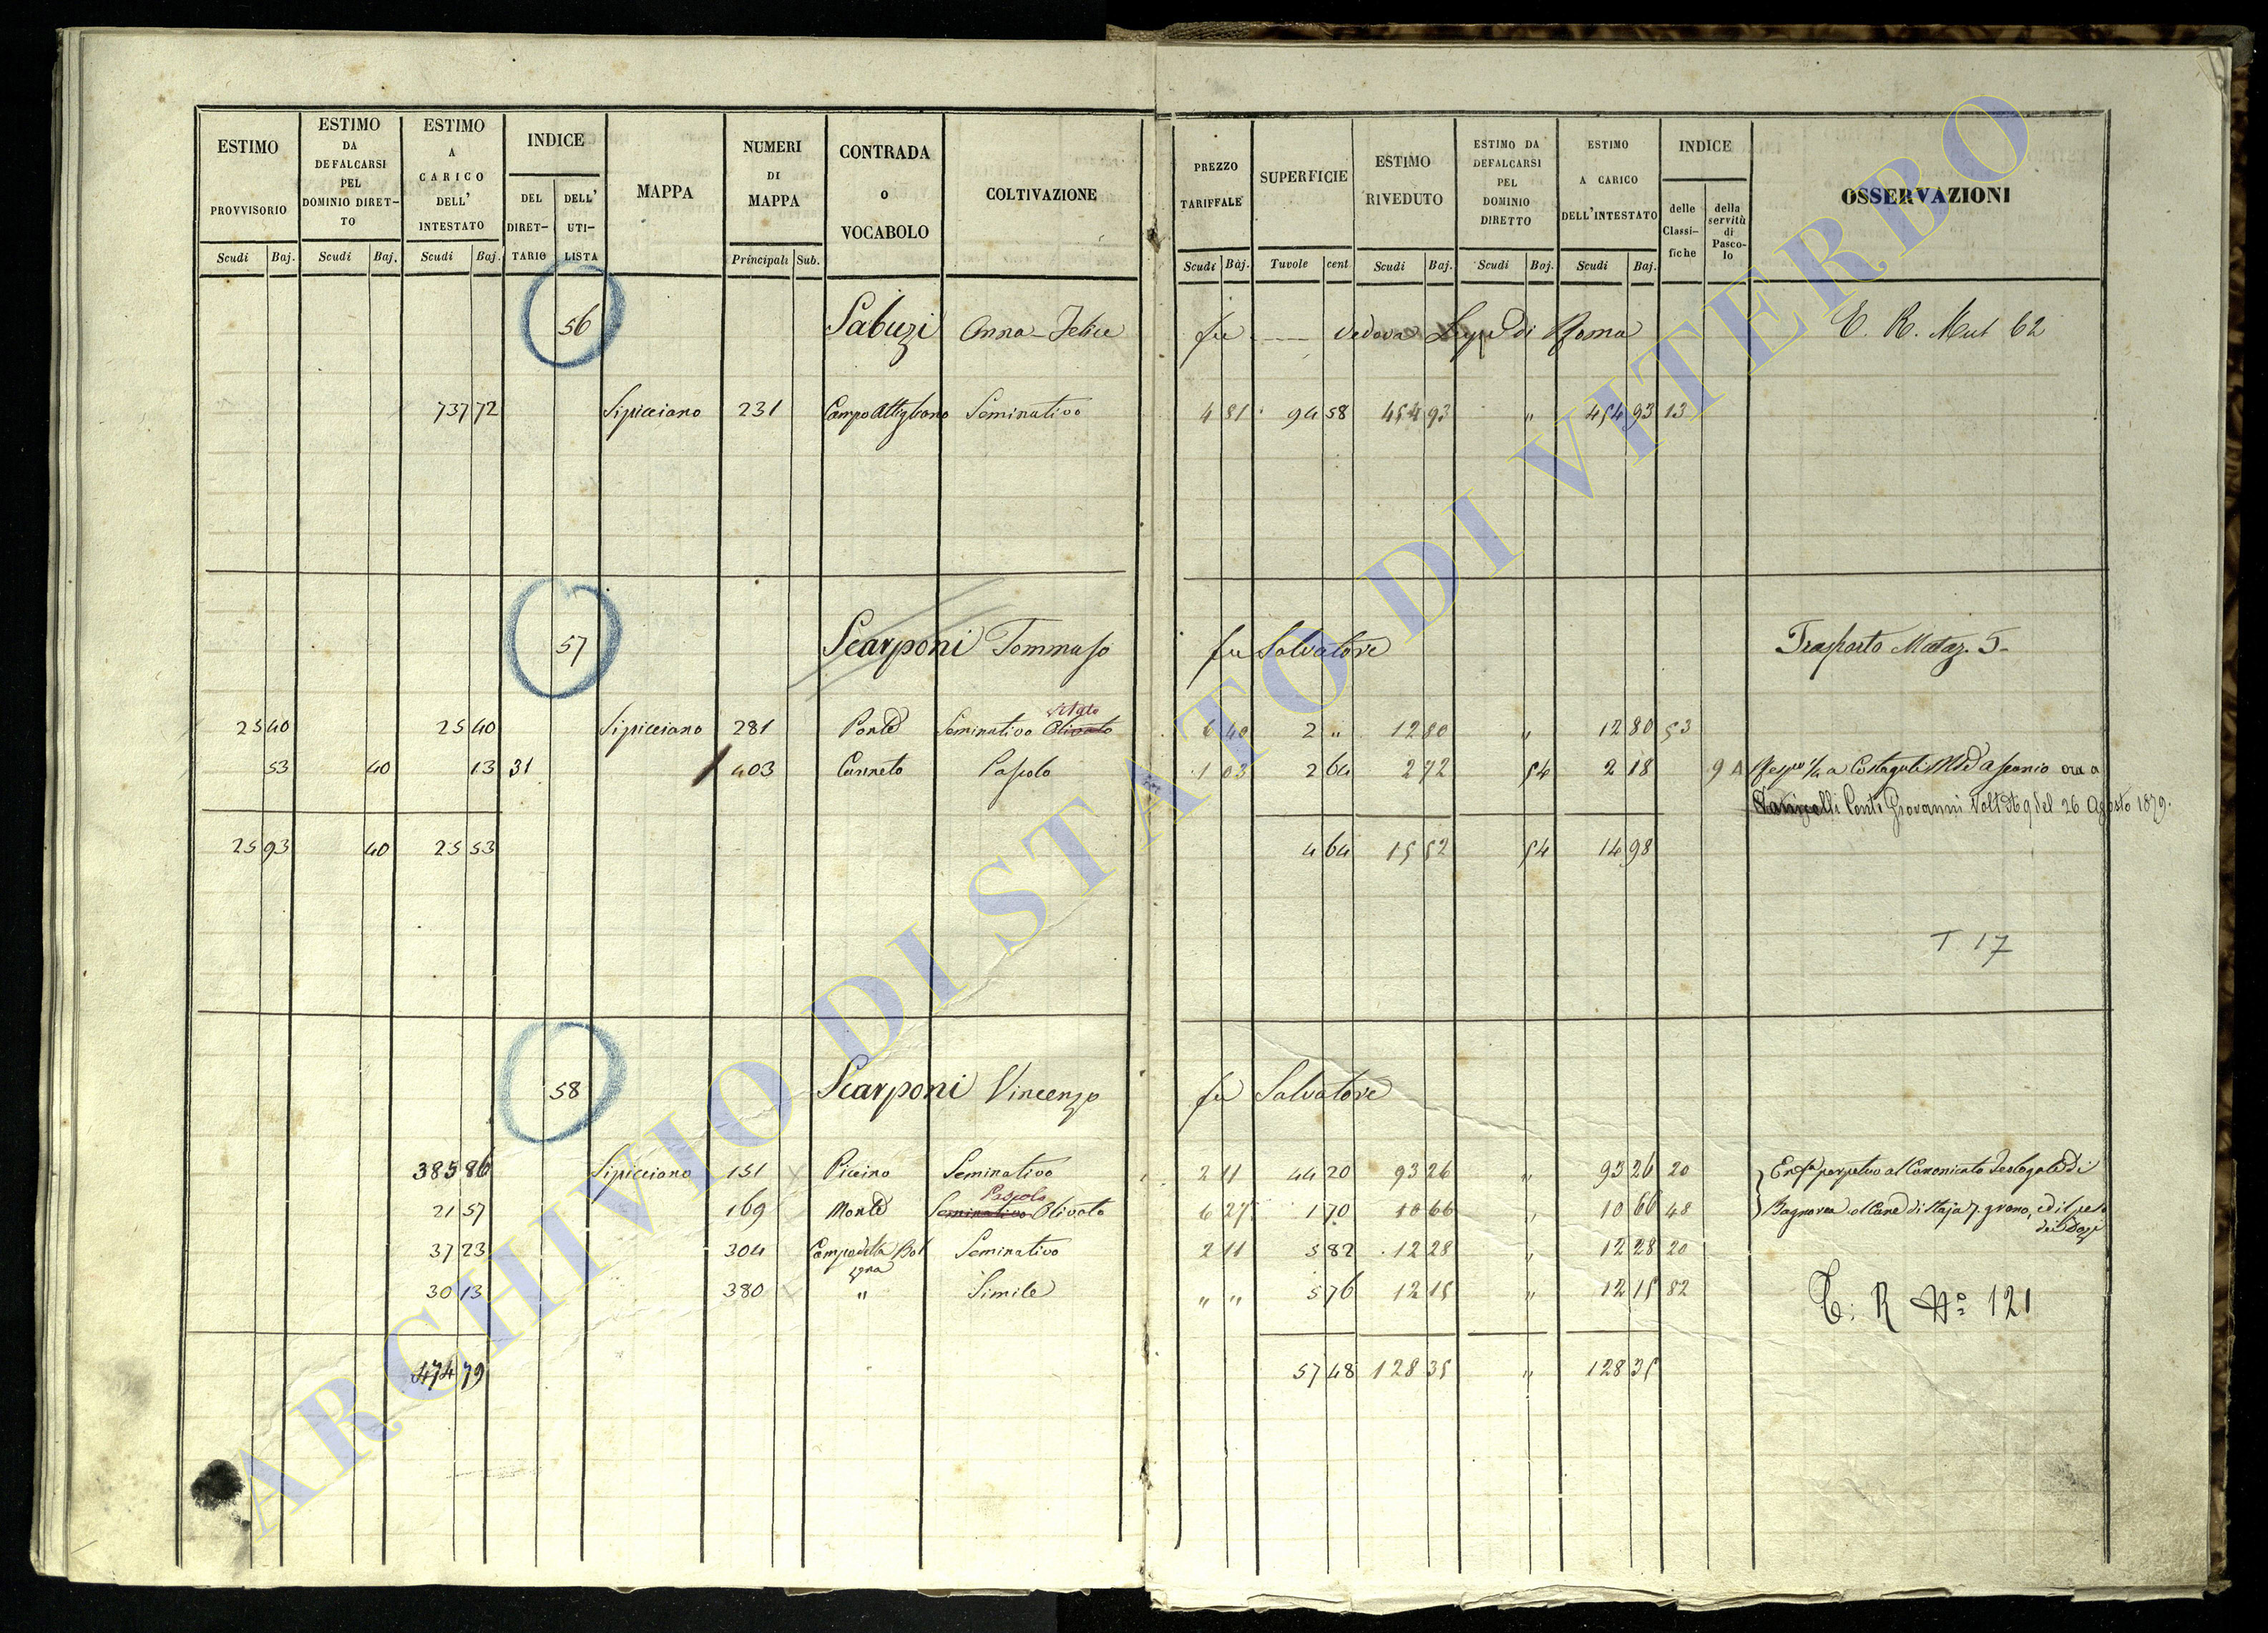 ESTIMO PROVVISORIO Scudi Baj.
ESTIMO DA DEFALCARSI PEL DOMINIO DIRET-TO Scudi Baj.
ESTIMO A CARICO DELL' INTESTATO Scudi Baj.
INDICE DEL DIRET-TARIO DELL' UTI-LISTA
MAPPA
NUMERI DI MAPPA Principali Sub.
CONTRADA o VOCABOLO
COLTIVAZIONE
PREZZO TARIFFALE Scudi Baj.
SUPERFICIE Tavole cent
ESTIMO RIVEDUTO Scudi Baj.
ESTIMO DA DEFALCARSI PEL DOMINIO DIRETTO Scudi Baj.
ESTIMO A CARICO DELL'INTESTATO Scudi Baj.
INDICE delle Classi-fiche della servitù di Pasco-lo
OSSERVAZIONI
56 Sabuzi Anna-Felice fu vedova di Roma E. R. Mut 62
737 72 Sipicciano 231 Campo Attigliano Seminativo 4 81 94 58 454 93 " 454 93 13
57 Scarponi Tommaso fu Salvatore Trasporto Mataz. 5
Vitato
25 40 25 40 Sipicciano 281 Ponte Seminativo Olivato 6 40 2 " 12 80 " 12 80 53
53 40 13 31 403 Canneto Pascolo 1 03 2 64 2 72 54 2 18 9 A a Costaguti Ascanio ora a
Conti Giovanni Volt del 26 Agosto 1879.
25 93 40 25 53 4 64 15 52 54 14 98
T 17
58 Scarponi Vincenzo fu Salvatore
385 86 Sipicciano 151 Piccino Seminativo 2 11 44 20 93 26 " 93 26 20 perpetua al Canonicato Teologale di
Pascolo
21 57 169 Monte Seminativo Olivato 6 27 1 70 10 66 " 10 66 48 Bagnorea di Staja 7. grano, ed il
37 23 304 Campo della Bot Seminativo 2 11 5 82 12 28 " 12 28 20
gna
30 13 380 " Simile " " 5 76 12 15 " 12 15 82
T. R N° 121
474 79 57 48 128 35 " 128 35
ARCHIVIO DI STATO DI VITERBO